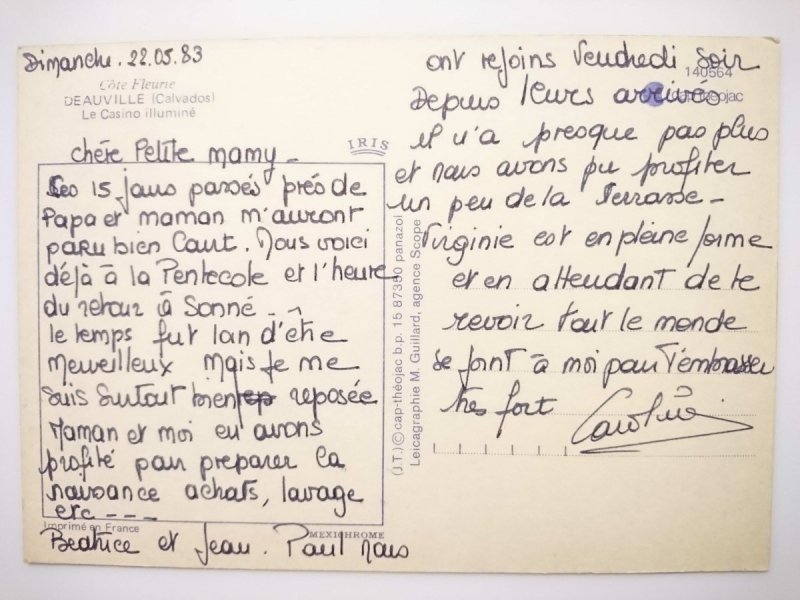 Dimanche. 22.05.83
Côte Fleurie
DEAUVILLE (Calvados)
Le Casino illuminé
IRIS
chère Petite mamy _
Les 15 jours passés près de
Papa et maman m'auront
paru bien court. Nous voici
déjà à la Pentecote et l'heure
du retour à Sonné _
le temps fut loin d'être
merveilleux mais je me
suis surtout bien reposée
Maman et moi en avons
profité pour preparer la
naissance achats, lavage
etc - - -
Imprimé en France
MEXICHROME
Beatrice et Jean. Paul nous
(J.T.) © cap-théojac b.p. 15 87350 panazol
Leicagraphie M. Guillard, agence Scope
ont rejoins Vendredi soir
140564
Depuis leurs arrivées
cap-théojac
il n'a presque pas plus
et nous avons pu profiter
un peu de la Terrasse _
Virginie est en pleine forme
et en attendant de te
revoir tout le monde
se joint à moi pour t'embrasser
très fort Caroline